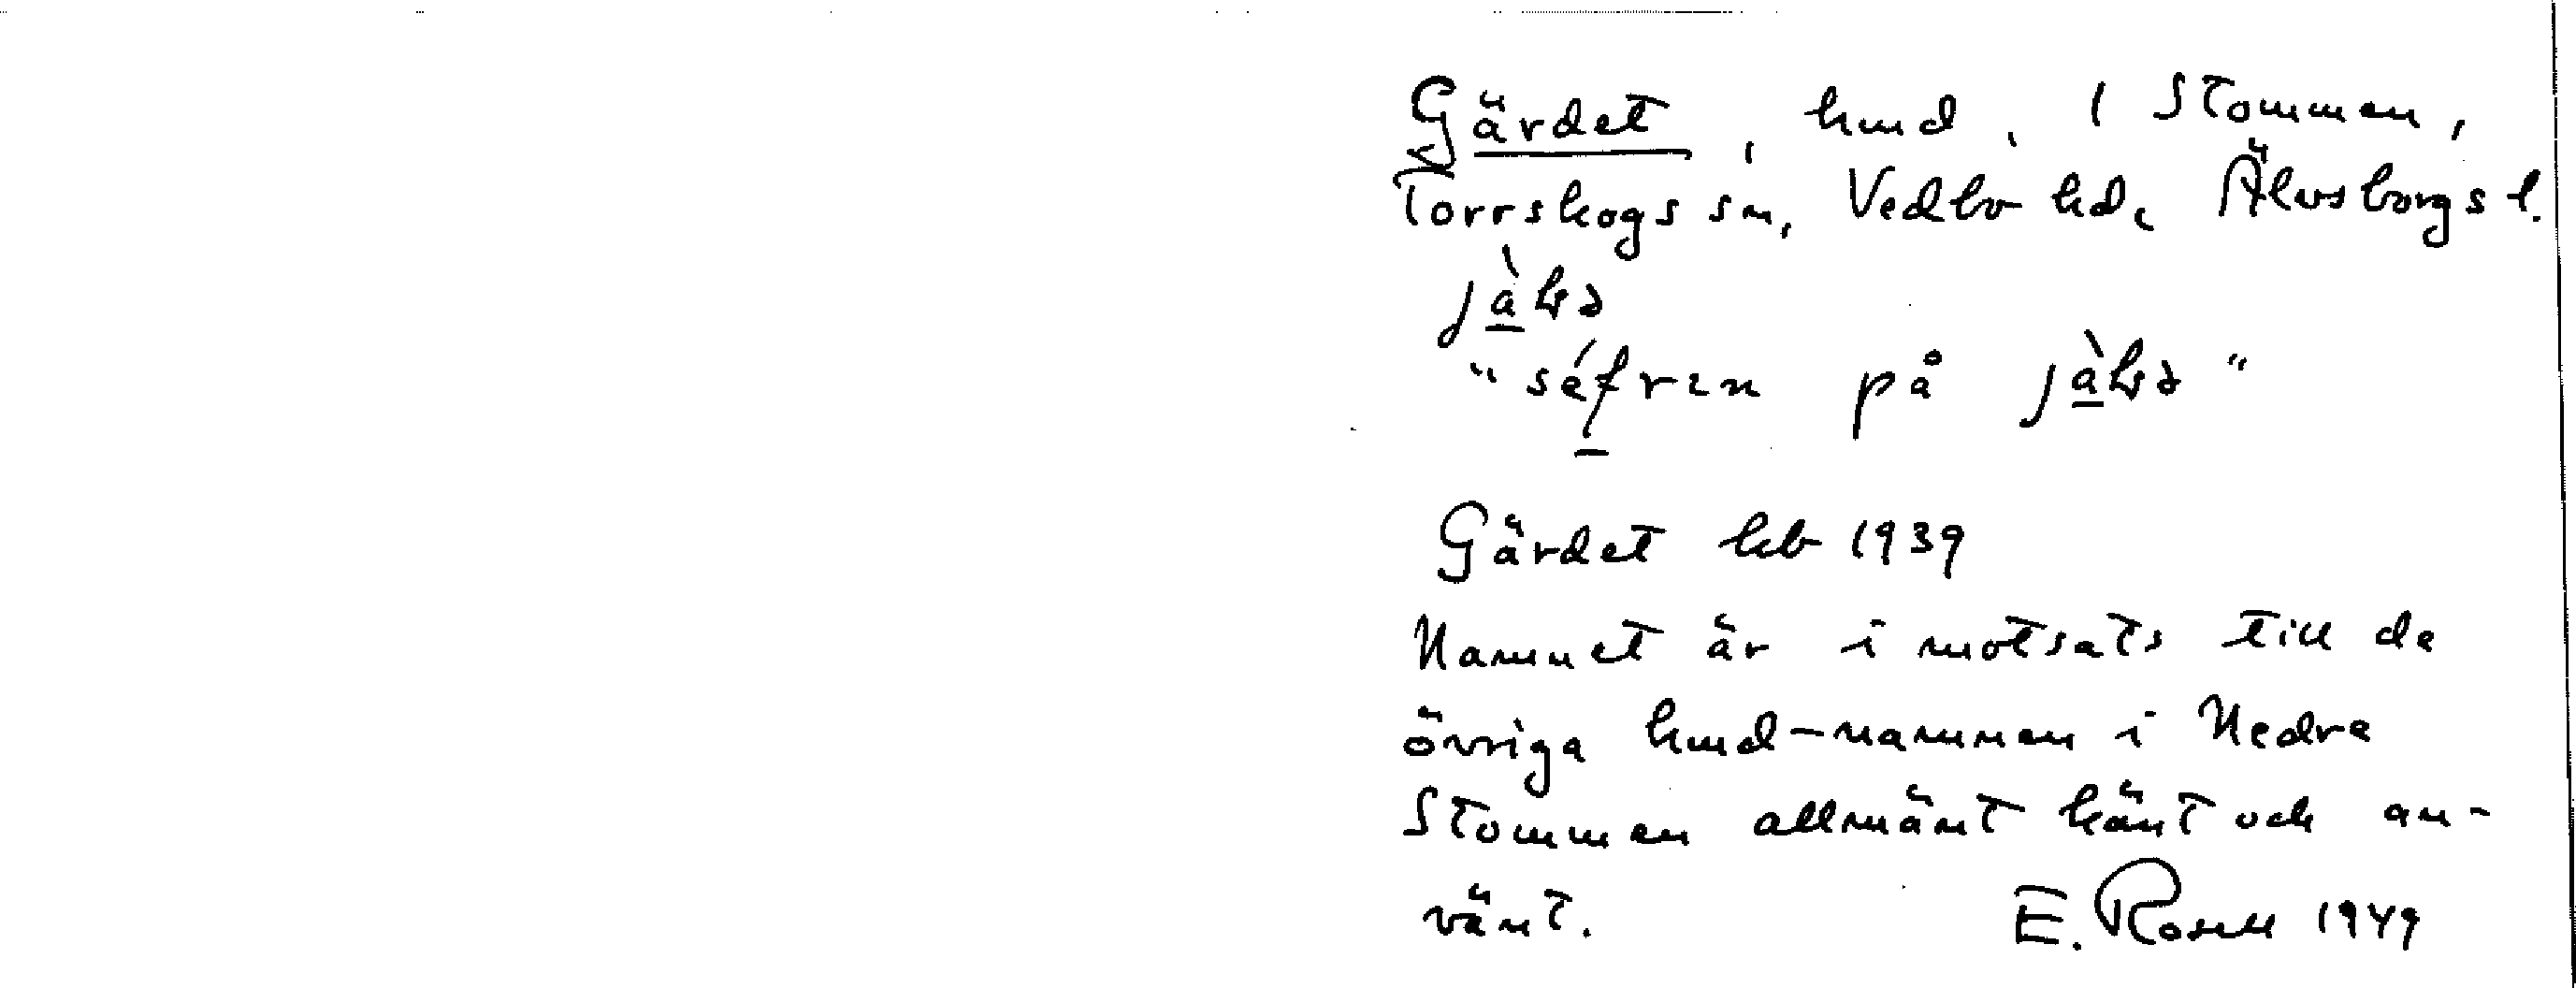 Gärdet, hmd, 1 Stommen,
Torrskogs sn, Vedbo hd, Älvsborgs l.
på
Gärdet kb 1939
Namnet är i motsats till de
övriga hmd-namnen i Nedre
Stommen allmänt känt och an-
vänt. E. Rosell 1949